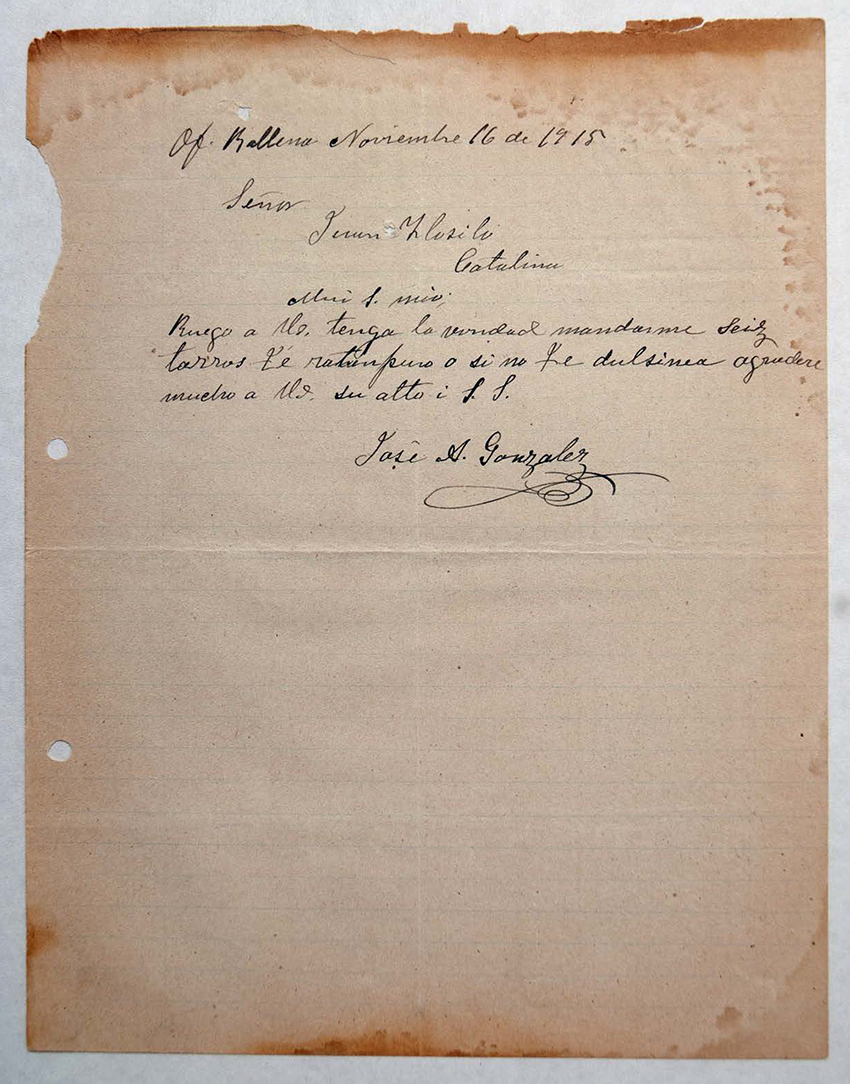 Of. Ballena Noviembre 16 de 1915
Señor
Juan
Catalina
Mui S. mio;
Ruego a Ud. tenga la vondad mandarme Seiz
tarros Té ratanpuro o si no Te dulsinea agradere
mucho a Ud. su atto i S. S.
José A. Gonzalez